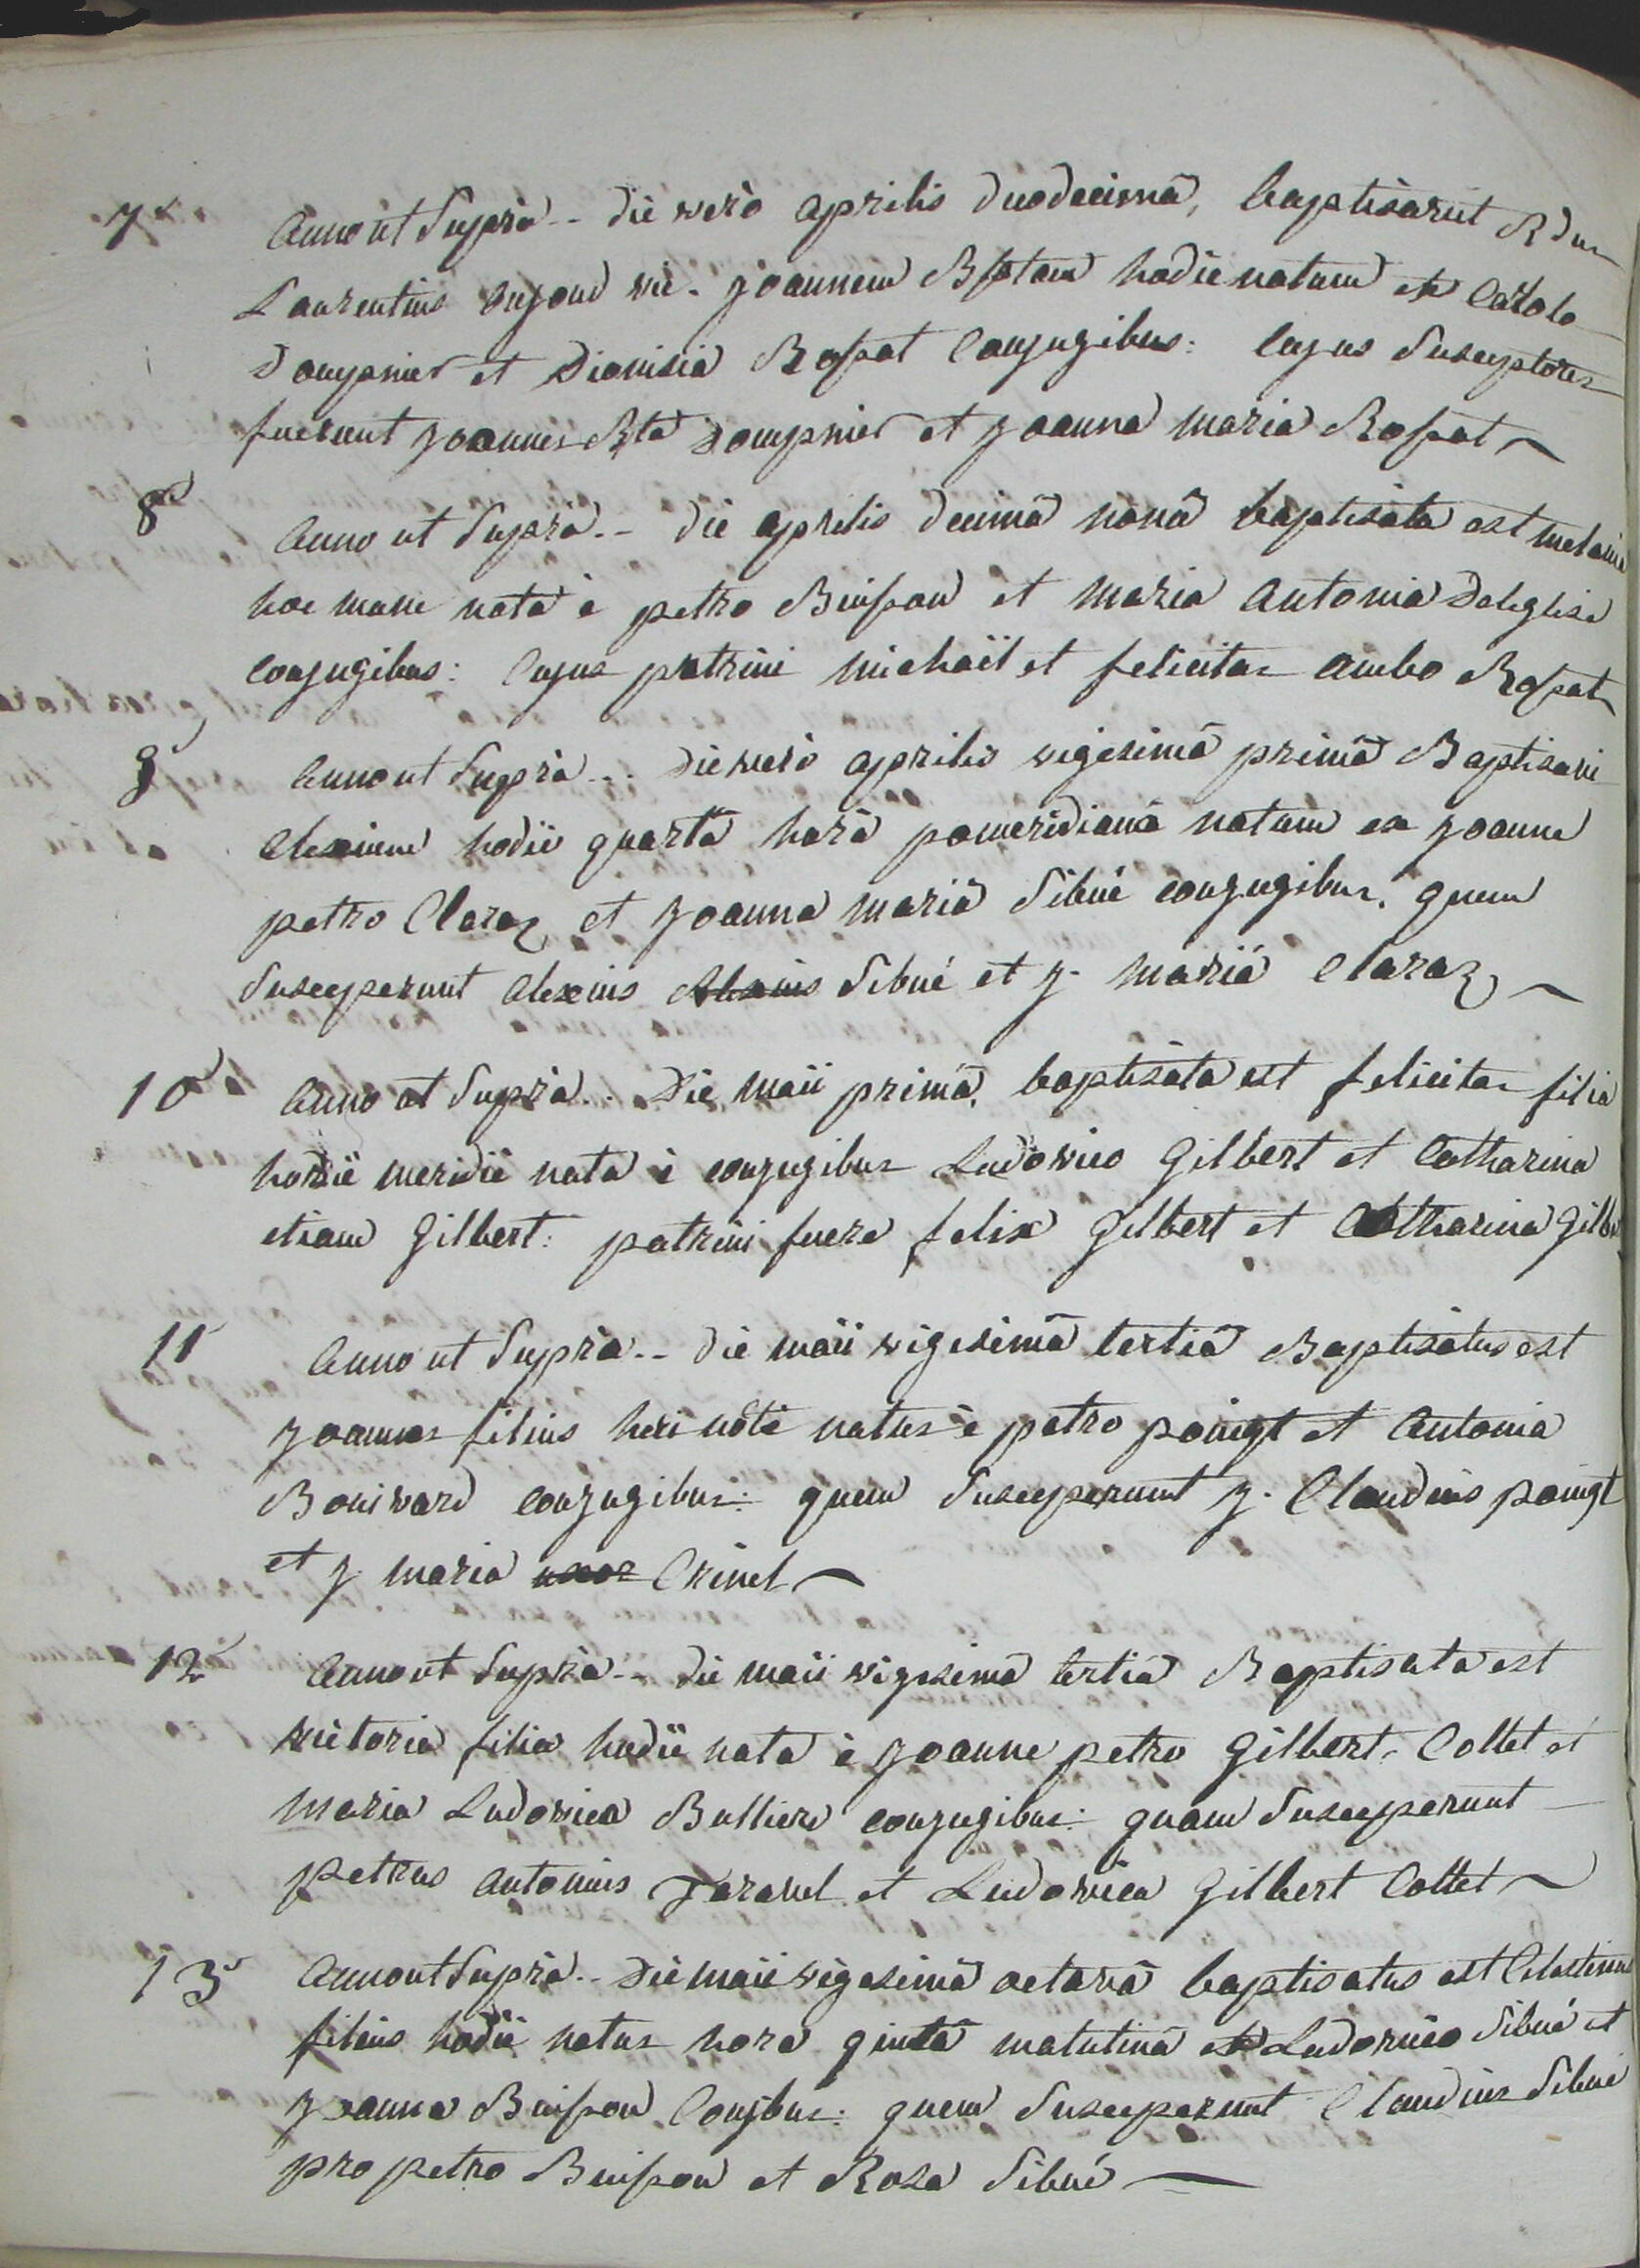 7
Anno ut Suprà -- die verò aprilis duodecimâ, baptisavit Rdus
Laurentius vic. joannem Bptam hodie natum ex Carolo
Dompnier et Dionisiâ Rossat Conjugibus: Cujus Susceptores
fuerunt joannes Bta Dompnier et joanna maria Rossat
8
Anno ut Suprà -- die aprilis decimâ nonâ baptisata est melanie
hoc mane nata è petro Buisson et maria Antonia Deleglise
conjugibus: Cujus patrini michaël et felicitas ambo Rossat
9
Anno ut Suprà -- die verò aprilis vigesimâ primâ Baptisavi
alexium hodiè quartâ horâ pomeridianâ natum ex joanne
petro Claraz et joanna mariâ Sibué conjugibus. quem
Susceperunt alexius Alexius Sibué et j. mariâ Claraz
10
Anno ut Suprà -- Die maii primâ, baptisata est felicitas filia
hodiè meridiè nata è conjugibus Ludovico Gilbert et Catharina
etiam Gilbert: patrini fuere felix Gilbert et Catharina Gilbert
11
Anno ut Suprà -- die maii vigesimâ tertiâ Baptisatus est
joannes filius heri nocte natus è petro poingt et Antonia
Bonivard conjugibus: quem Susceperunt j. Claudius poingt
et j maria uxor Crinel
12
Anno ut Suprà -- die maii vigesimâ tertiâ Baptisata est
victoria filia hodiè nata è joanne petro Gilbert-Collet et
maria Ludovica Bulliere conjugibus: quam Susceperunt
petrus antonius Taravel et Ludovica Gilbert Collet
13
Anno ut Suprà -- Die maii vigesimâ octavâ baptisatus est Celestinus
filius hodiè natus hora quintâ matutinâ ex Ludovico Sibué et
joanna Buisson Conjbus: quem Susceperunt Claudius Sibué
pro petro Buisson et Rosa Sibué